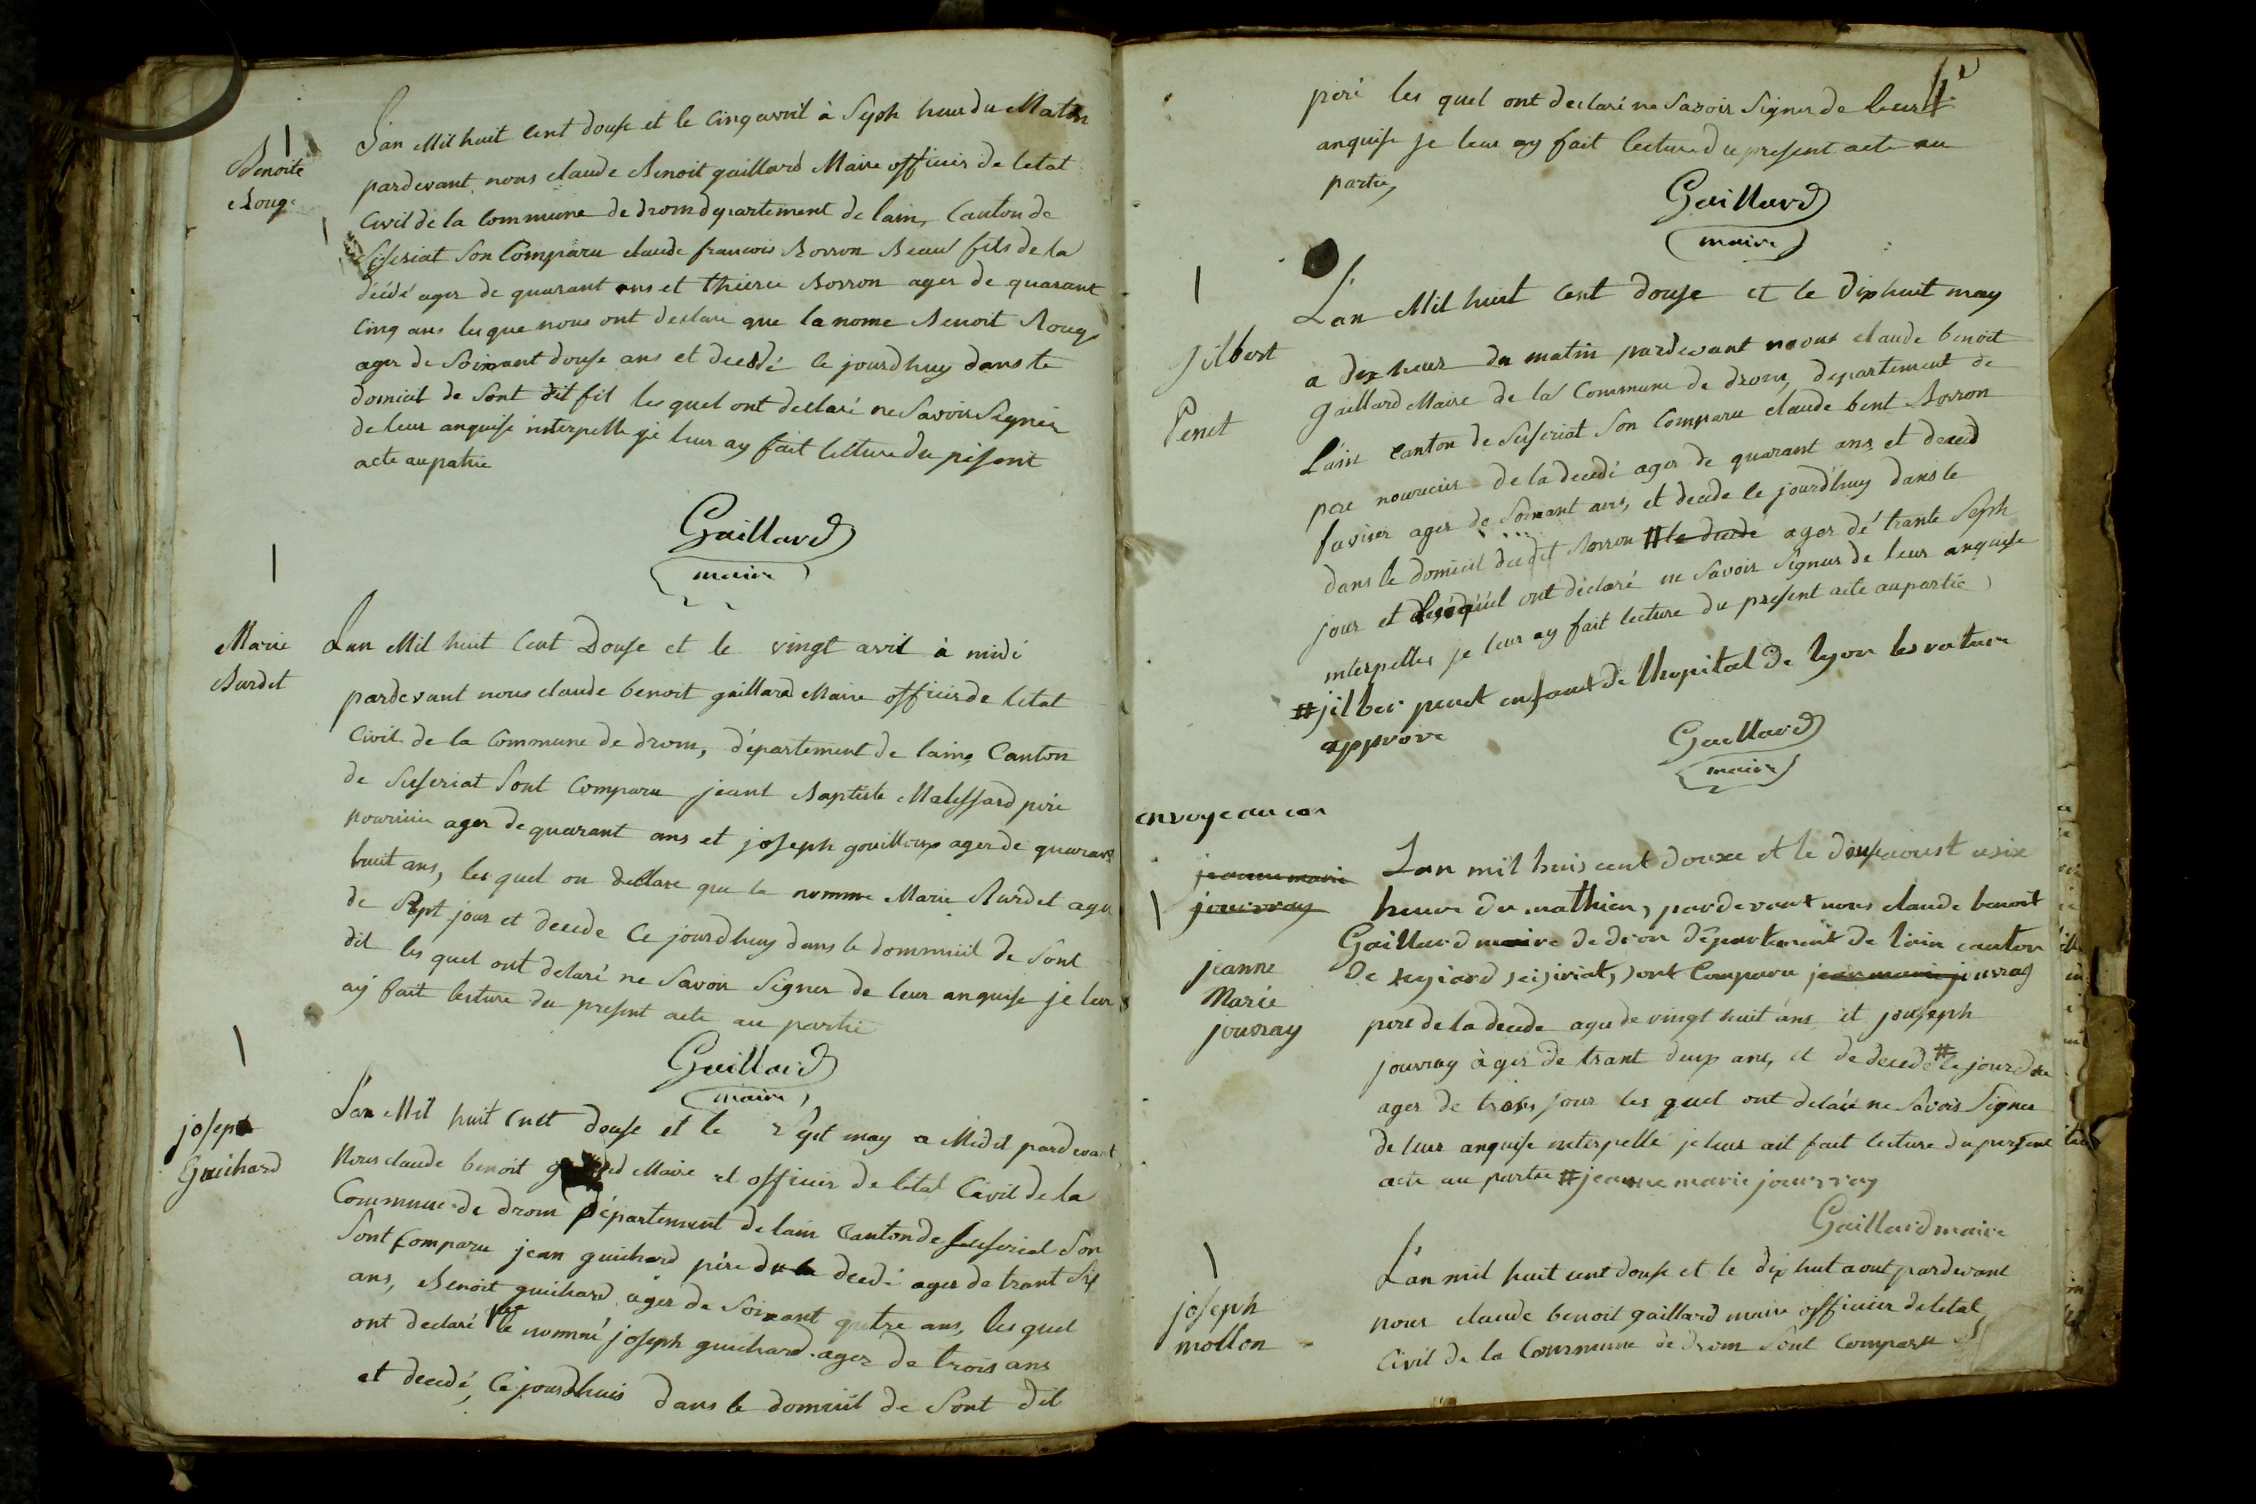 Benoite
Rouge
Lan Mil huit Cent douse et le Cinq avril à Seph heur du Matin
pardevant nous claude Benoit gaillard Maire officier de letat
Civil de la Commune de drom departement de lain, Canton de
Siseriat Son Comparu claude francois Borron Beau fils de la
décédé ager de quarant ans et thierie Borron ager de quarant
Cinq ans lesque nous ont declare que la nome Benoit Rouge
ager de Soixant douse ans et decedé le jourdhuy dans le
domicil de Sont dit fil les quel ont declaré ne Savoir Signer
de leur anquise interpelle je leur ay fait lecture du pisent
acte au patrie
Gaillard
maire
Marie
Burdet
Lan Mil huit Cent Douse et le vingt avril à midi
pardevant nous claude benoit gaillard Maire officier de letat
Civil de la Commune de drom, département de laing Canton
de Siseriat Sont Comparu jeant Baptiste Malessard père
nouricier ager de quarant ans et joseph gouilloux ager de quarant
huit ans, les quel on declare que la nomme Marie Burdet ager
de Sept jour et decede Ce jourdhuy dans le dommicil de Sont
dit les quel ont delaré ne Savoir Signer de leur anquise je leur
ay fait lecture du present acte au partie
Gaillard
maire
joseph
Guichard
Lan Mil huit Cent douse et le Sept may a Midit pardevant
Nous claude benoit Maire et officier de letat Civil de la
Commune de drom Département de lain Canton de Siseriat Son
Sont Comparu jean guichard père du decedé ager de trant Six
ans, Benoit guichard ager de Soixant quatre ans, les quel
ont declaré que le nommé joseph guichard ager de trois ans
et decedé, Ce jourdhuis dans le domicil de Sont dit
père les quel ont declaré ne Savoir Signer de leur
anquise je leur ay fait lecture du present acte au
partie,
Gaillard
maire
jilbert
Penet
Lan Mil huit Cent douse et le Dix huit may
a dix heur du matin pardevant nous claude benoit
gaillard Maire de la Commune de drom, departement de
Lain canton de Siseriat Son Comparu claude bent Borron
pere nouricier de la decedé ager de quarant ans et
ager de Soixant ans, et decede le jourdhuy dans le
dans le domicil du dit Borron # le decede ager dé trante Seph
jour et lesquel ont déclaré ne Savoir Signer de leur anquise
interpeller je leur ay fait lecture du present acte aupartie
# jilber penet enfant de lhopital de lyon les rature
approve
Gaillard
maire
envoye au can
jeanne marie
jouvray
jeanne
Marie
jouvray
Lan mil huis cent douxe et le aoust a six
heure du mathien, pardevant nous claude benoit
Gaillard maire de dron département de lain canton
de seisiriat, sont Comparu jean marie jouvray
pere de la decede ager de vingt huit ans et jouseph
jouvray àger de trant deux ans, et de decede # le jourdhu
ager de trois jour les quel ont delaré ne Savoir Signer
de leur anquise interpellé je leur ait fait lecture du persent
acte au partie # jeanne marie jouvray
Gaillard maire
joseph
mollon
Lan mil huit cent douse et le dix huit aout pardevant
nous claude benoit gaillard maire officier de letat
Civil de la Commune de drom Sont Comparu